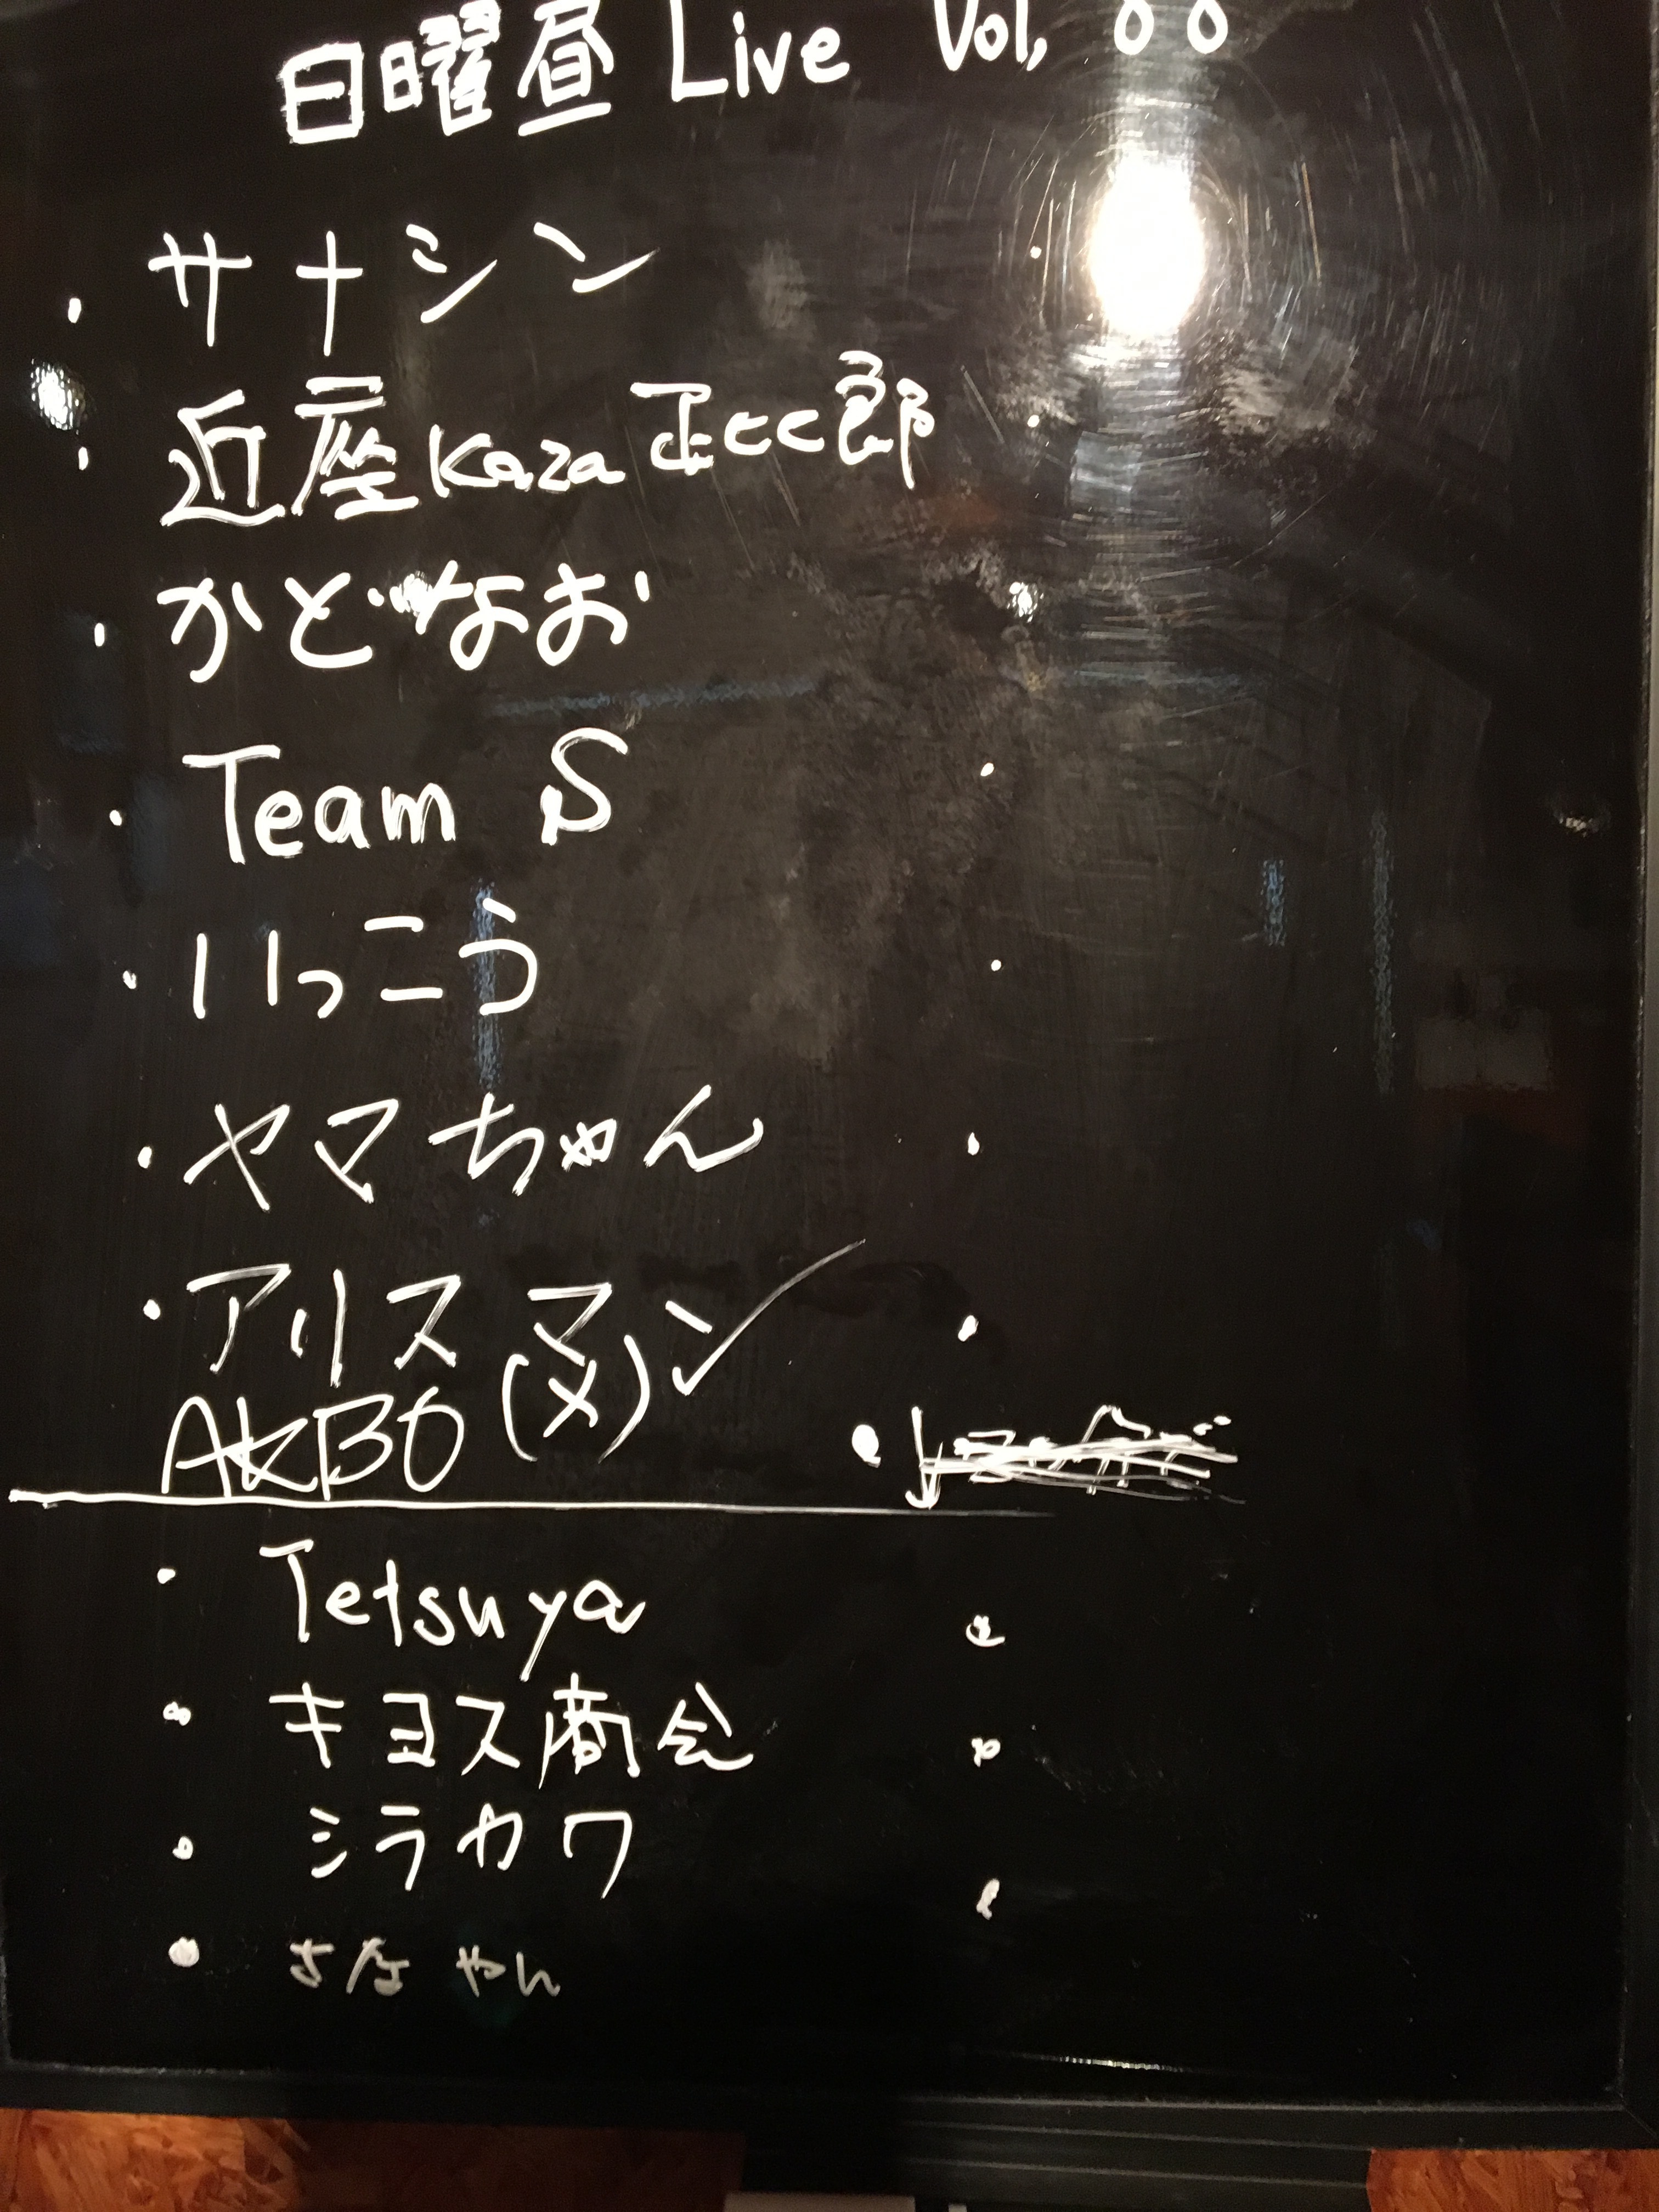 日曜昼 Live Vol,
・サナシン
・近座Kaza正比呂郎
・かどなお
・Team S
・いっこう
・ヤマちゃん
・アリスマン
AKBO (メ)
・Tetsuya
・キヨス商会
・シラカワ
・さなやん